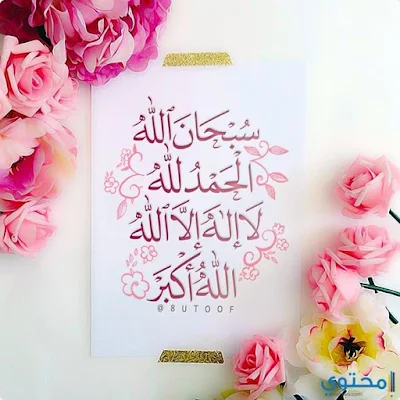 سُبْحَانَ ٱللَّٰهِ
الْحَمْدُ لِلَّٰهِ
لَا إِلَٰهَ إِلَّا ٱللَّٰهُ
اللَّٰهُ أَكْبَرْ
@8UTOOF
محتوى